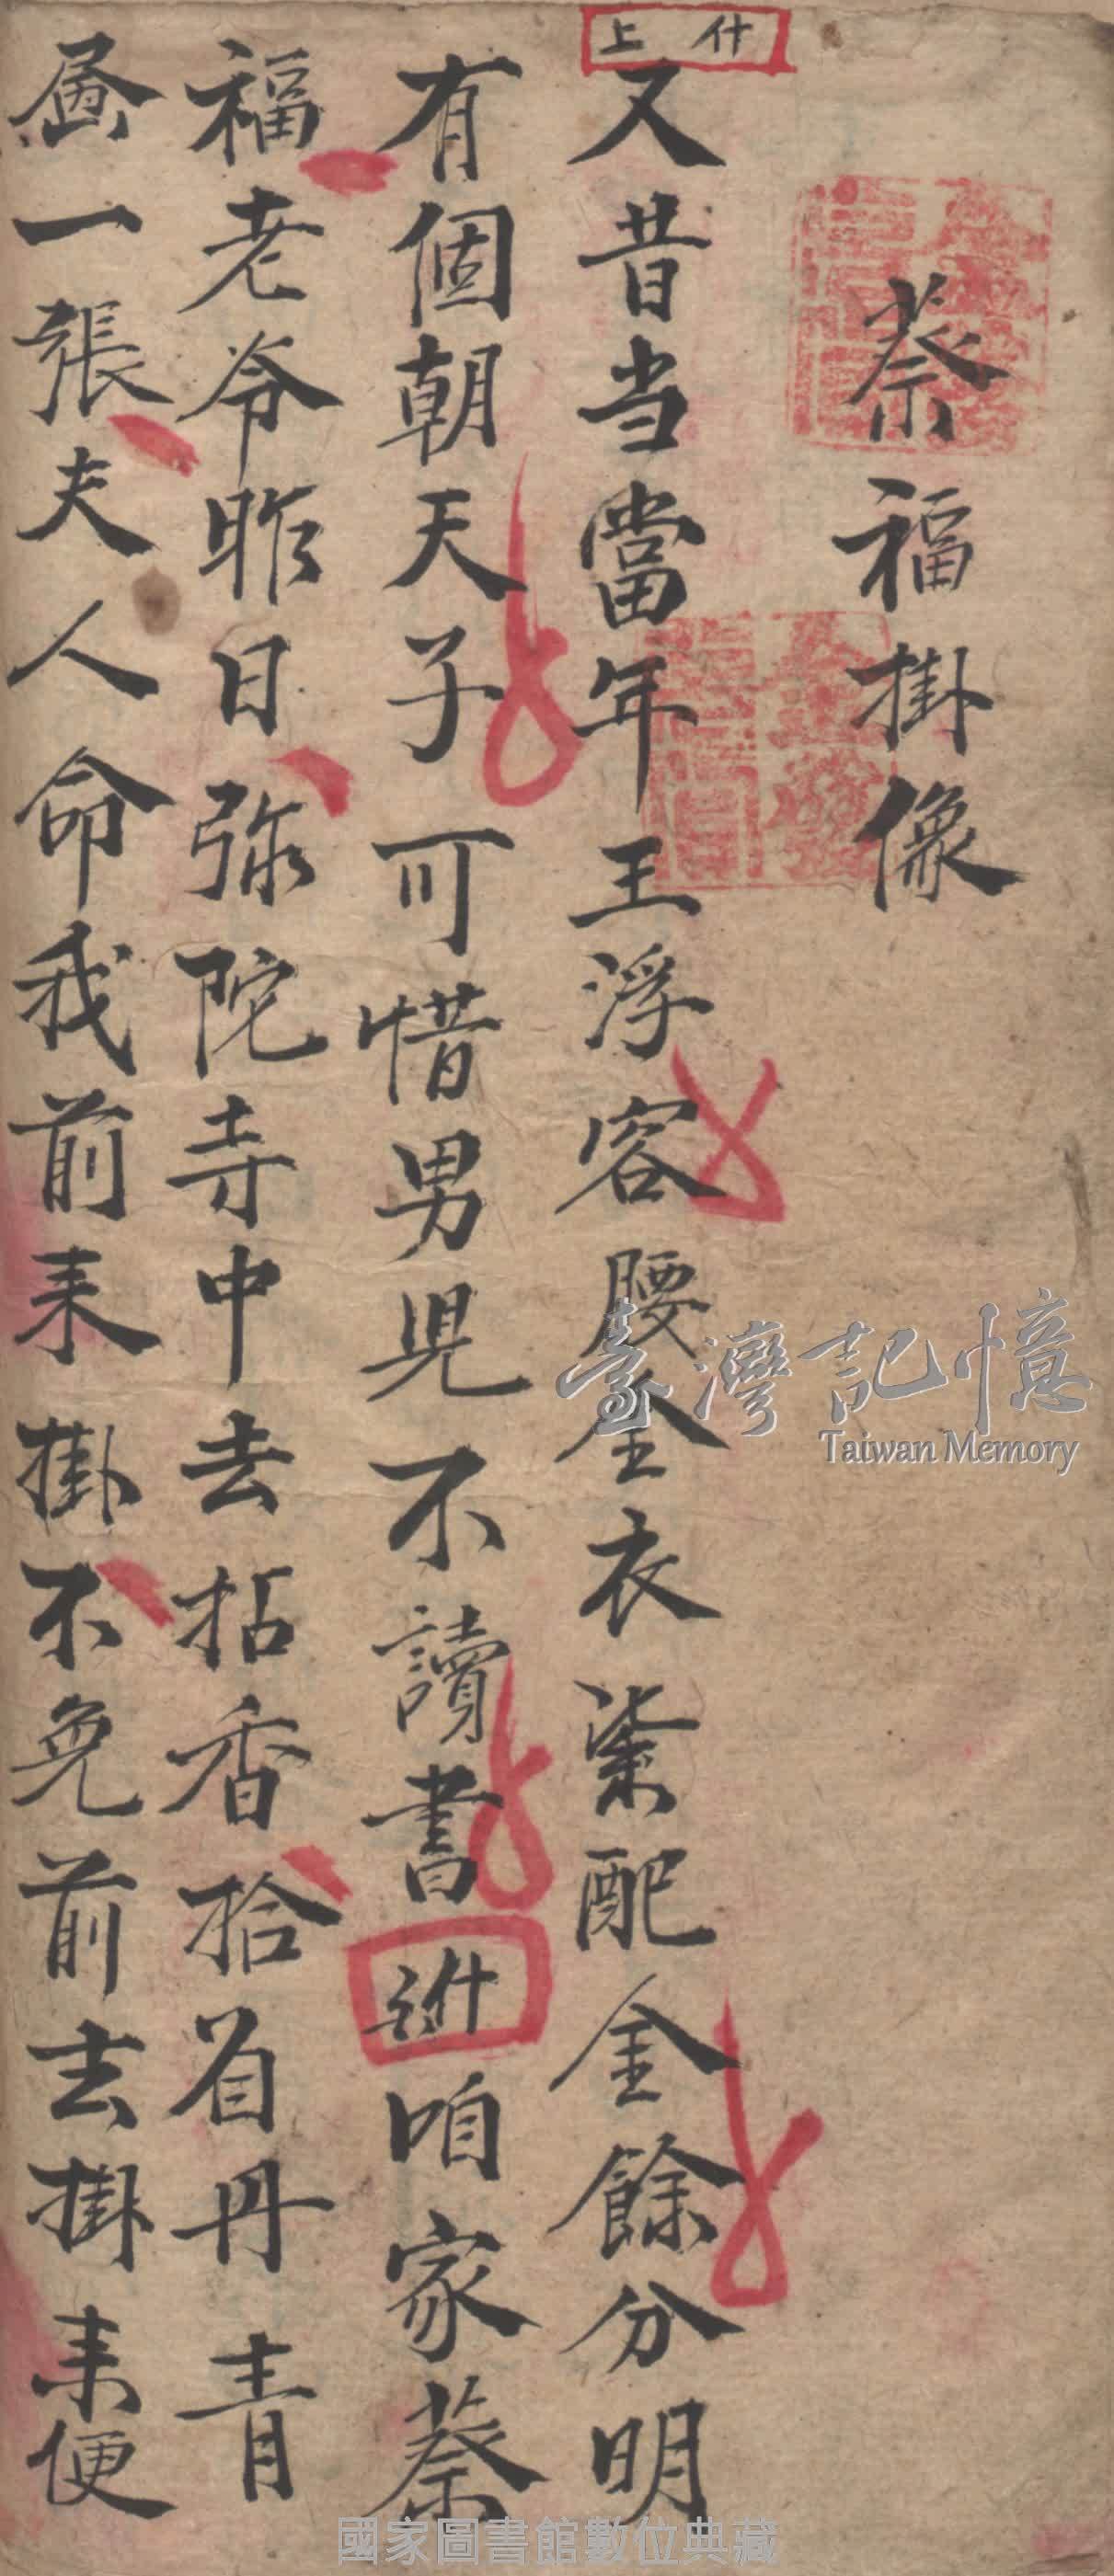 蔡福掛像
什上
又昔当當年王浮容腰全衣柒配金餘分明
有個朝天子可惜男児不讀書 介咱家蔡
福老爷昨日弥陀寺中去拈香拾着丹青
畵一張夫人命我前来掛不免前去掛来便
臺灣記憶
Taiwan Memory
國家圖書館數位典藏